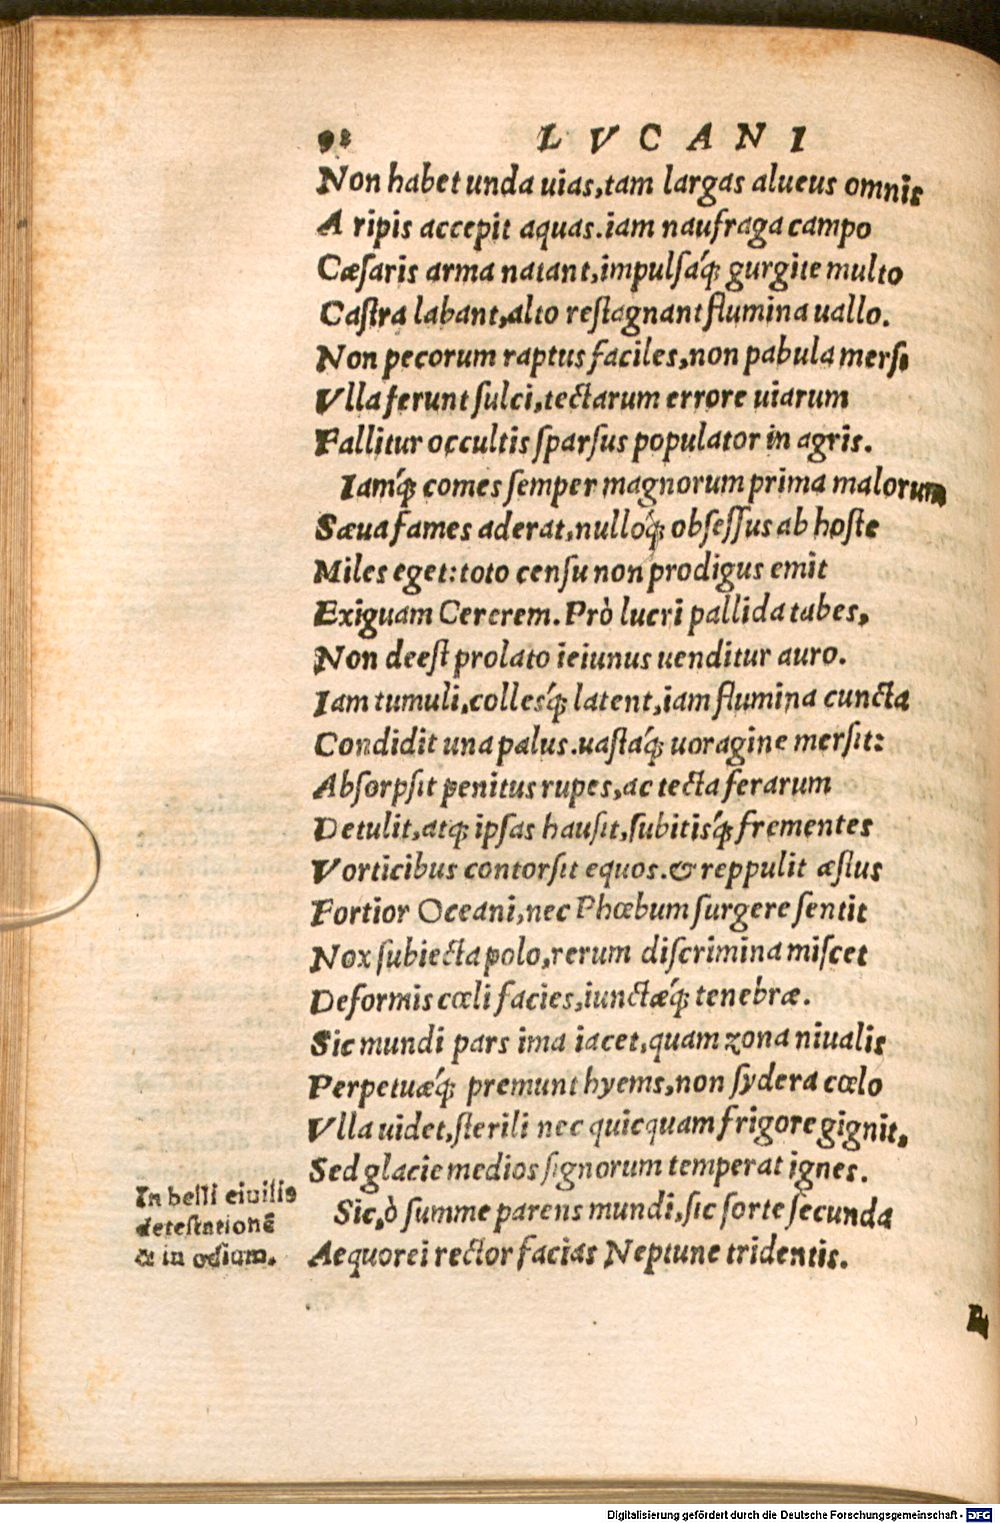 92 LVCANI
Non habet unda uias,tam largas alueus omnis
A ripis accepit aquas.iam naufraga campo
Cæsaris arma natant,impulsáq; gurgite multo
Castra labant,alto restagnant flumina uallo.
Non pecorum raptus faciles,non pabula mersi
Vlla ferunt sulci,tectarum errore uiarum
Fallitur occultis sparsus populator in agris.
Iamq́; comes semper magnorum prima malorum
Sæua fames aderat,nulloq́; obsessus ab hoste
Miles eget:toto censu non prodigus emit
Exiguam Cererem. Prò lucri pallida tabes,
Non deest prolato ieiunus uenditur auro.
Iam tumuli,collesq́; latent,iam flumina cuncta
Condidit una palus.uastáq; uoragine mersit:
Absorpsit penitus rupes,ac tecta ferarum
Detulit,atq; ipsas hausit,subitisq́; frementes
Vorticibus contorsit equos.& reppulit æstus
Fortior Oceani,nec Phœbum surgere sentit
Nox subiecta polo,rerum discrimina miscet
Deformis cœli facies,iunctæq́; tenebræ.
Sic mundi pars ima iacet,quam zona niualis
Perpetuæq́; premunt hyems,non sydera cœlo
Vlla uidet,sterili nec quicquam frigore gignit,
Sed glacie medios signorum temperat ignes.
Sic,ò summe parens mundi,sic sorte secunda
Aequorei rector facias Neptune tridentis.
In belli ciuilis
detestationē
& in odium.
Digitalisierung gefördert durch die Deutsche Forschungsgemeinschaft - DFG